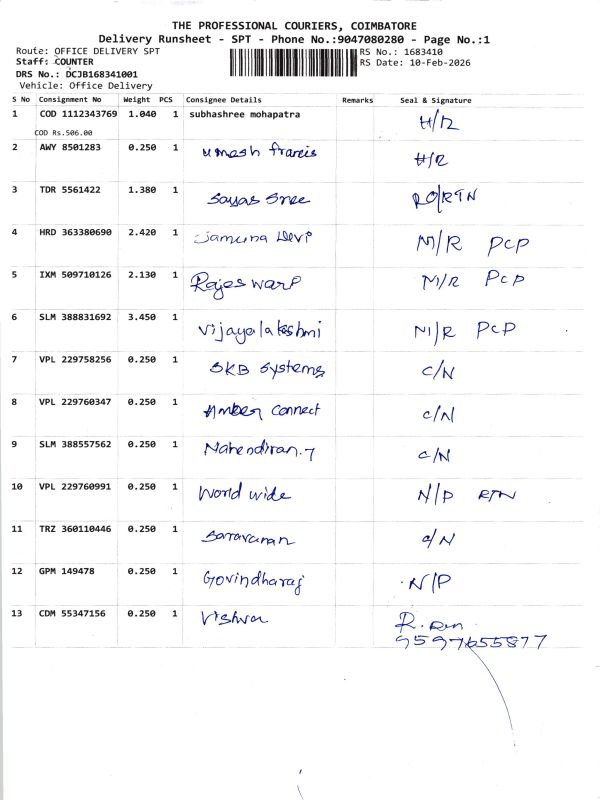 THE PROFESSIONAL COURIERS, COIMBATORE
Delivery Runsheet - SPT - Phone No.:9047080280 - Page No.:1
Route: OFFICE DELIVERY SPT RS No.: 1683410
Staff: COUNTER RS Date: 10-Feb-2026
DRS No.: DCJB168341001
Vehicle: Office Delivery
S No Consignment No Weight PCS Consignee Details Remarks Seal & Signature
1 COD 1112343769 1.040 1 subhashree mohapatra H/R
COD Rs.506.00
2 AWY 8501283 0.250 1 Umesh francis H/R
3 TDR 5561422 1.380 1 Sayas Sree RO/RTN
4 HRD 363380690 2.420 1 Jamuna Devi M/R PCP
5 IXM 509710126 2.130 1 Rajeswari M/R PCP
6 SLM 388831692 3.450 1 Vijayalakshmi M/R PCP
7 VPL 229758256 0.250 1 SKB Systems C/N
8 VPL 229760347 0.250 1 Amber Connect C/N
9 SLM 388557562 0.250 1 Narendiran.7 C/N
10 VPL 229760991 0.250 1 World wide N/P RTN
11 TRZ 360110446 0.250 1 Sarravanan C/N
12 GPM 149478 0.250 1 Govindharaj N/P
13 CDM 55347156 0.250 1 Vishva
9597655877